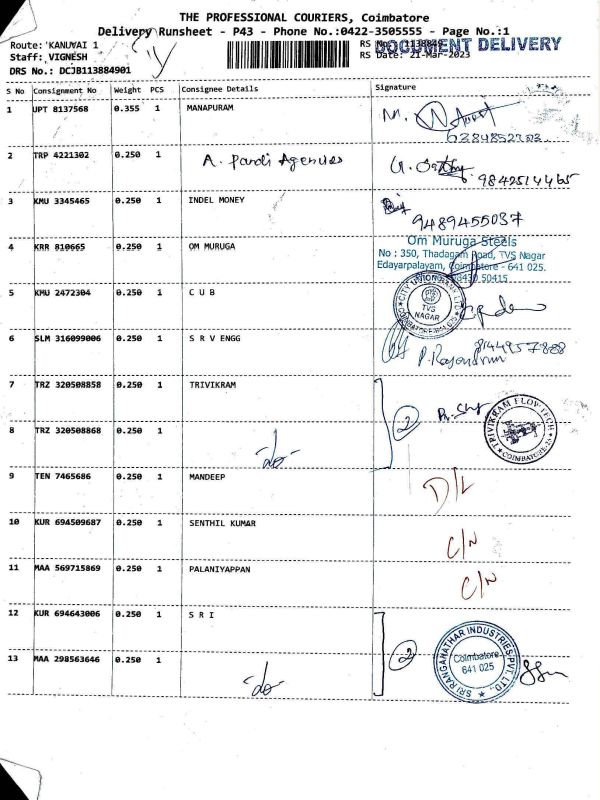 THE PROFESSIONAL COURIERS, Coimbatore
Delivery Runsheet - P43 - Phone No.:0422-3505555 - Page No.:1
Route: KANUVAI 1
Staff: VIGNESH
DRS No.: DCJB113884901
DOCUMENT DELIVERY
RS Date: 21-Mar-2023
S No Consignment No Weight PCS Consignee Details Signature
1 UPT 8137568 0.355 1 MANAPURAM
6384852303
2 TRP 4221302 0.250 1 A. Pandi Agencies
9842514465
3 KMU 3345465 0.250 1 INDEL MONEY
9489455037
4 KRR 810665 0.250 1 OM MURUGA
Om Muruga Steels
No : 350, Thadagam Road, TVS Nagar
Edayarpalayam, Coimbatore - 641 025.
5 KMU 2472304 0.250 1 C U B
CITY UNION BANK LTD
TVS
NAGAR
6 SLM 316099006 0.250 1 S R V ENGG
P. Rajendran 8144957888
7 TRZ 320508858 0.250 1 TRIVIKRAM
2
TRIVIKRAM FLOW TECH
COIMBATORE-25
8 TRZ 320508868 0.250 1 -do-
9 TEN 7465686 0.250 1 MANDEEP
D/L
10 KUR 694509687 0.250 1 SENTHIL KUMAR
C/N
11 MAA 569715869 0.250 1 PALANIYAPPAN
C/N
12 KUR 694643006 0.250 1 S R I
2
SRI RANGANATHAR INDUSTRIES PVT. LTD.,
Coimbatore
641 025
13 MAA 298563646 0.250 1 -do-